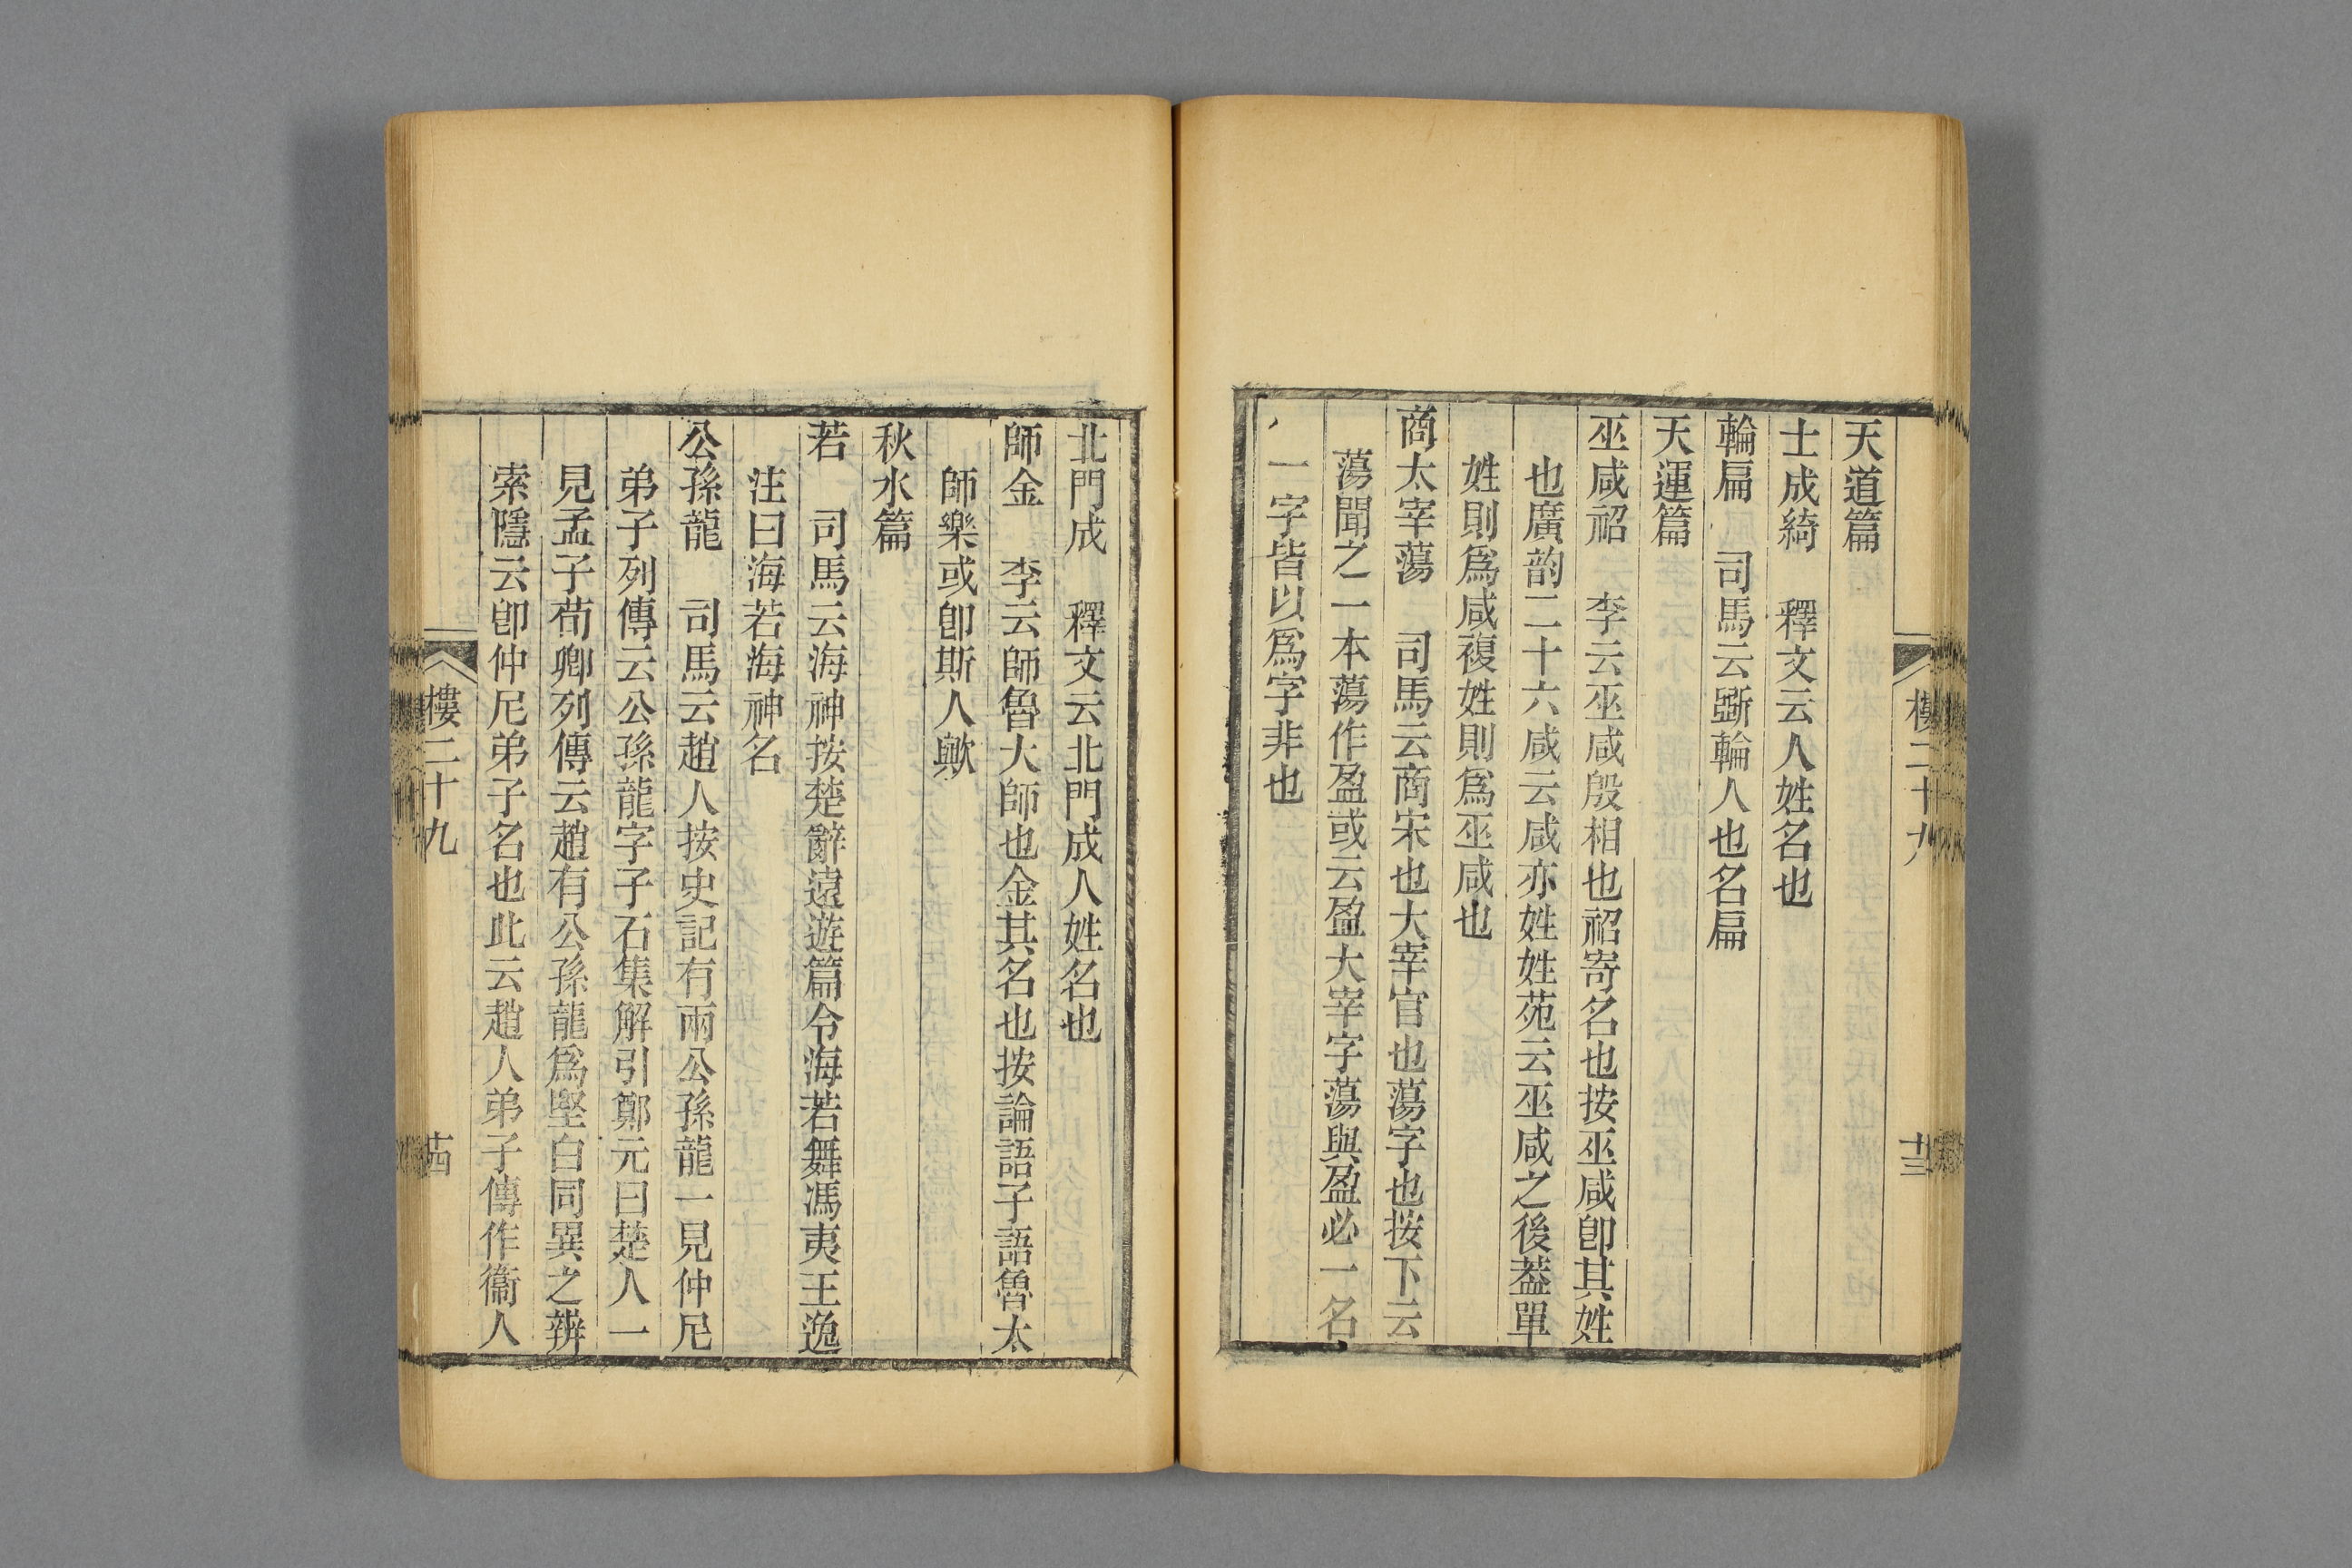 天道篇
士成綺　釋文云人姓名也
輪扁　司馬云斲輪人也名扁
天運篇
巫咸祒　李云巫咸殷相也祒寄名也按巫咸卽其姓
也廣韵二十六咸云咸亦姓姓苑云巫咸之後葢單
姓則爲咸複姓則爲巫咸也
商太宰蕩　司馬云商宋也大宰官也蕩字也按下云
蕩聞之一本蕩作盈或云盈大宰字蕩與盈必一名
一字皆以爲字非也
樓二十九
十三
北門成　釋文云北門成人姓名也
師金　李云師魯大師也金其名也按論語子語魯太
師樂或卽斯人歟
秋水篇
若　司馬云海神按楚辭遠遊篇令海若舞馮夷王逸
注曰海若海神名
公孫龍　司馬云趙人按史記有兩公孫龍一見仲尼
弟子列傳云公孫龍字子石集解引鄭元曰楚人一
見孟子荀卿列傳云趙有公孫龍爲堅白同異之辨
索隱云卽仲尼弟子名也此云趙人弟子傳作衞人
樓二十九
十四